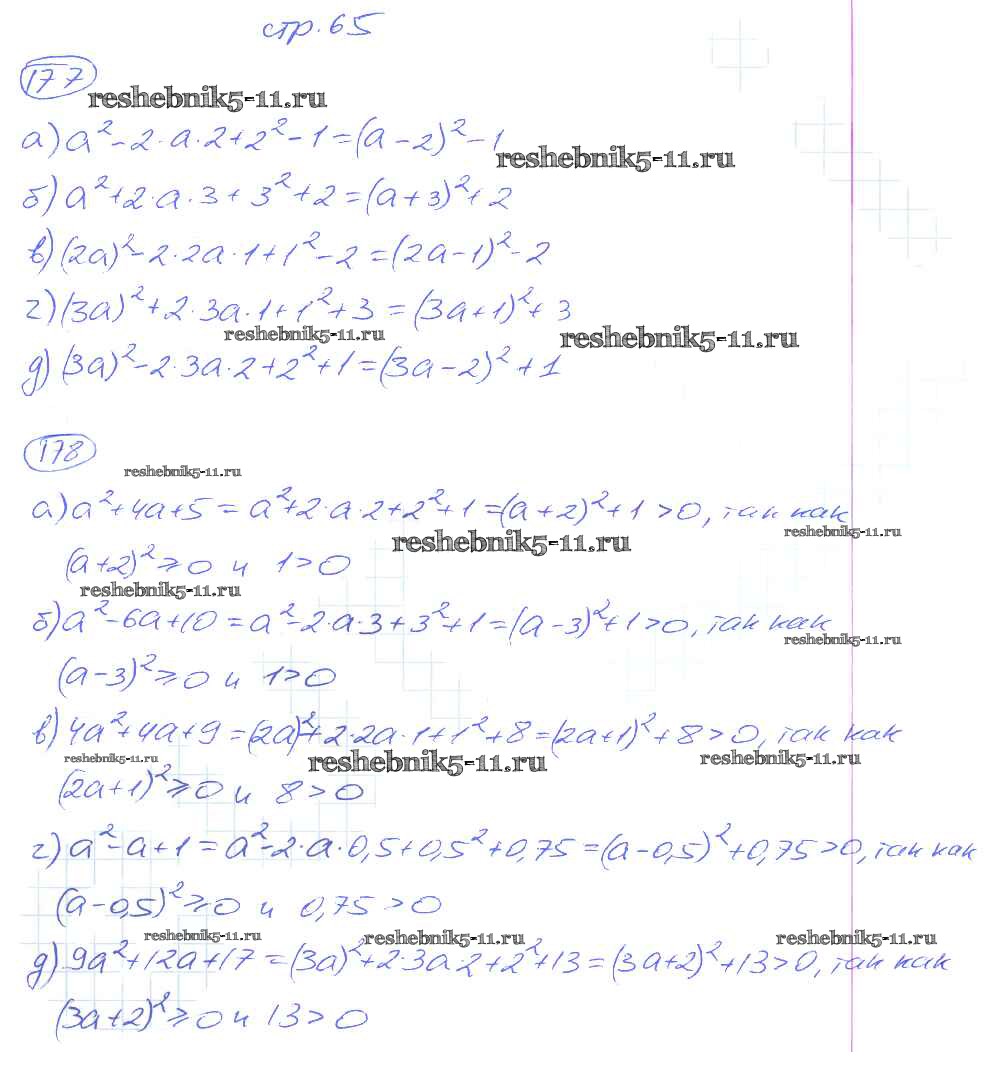 стр. 65
177
reshebnik5-11.ru
а) a² - 2·a·2 + 2² - 1 = (a - 2)² - 1
reshebnik5-11.ru
б) a² + 2·a·3 + 3² + 2 = (a + 3)² + 2
в) (2a)² - 2·2a·1 + 1² - 2 = (2a - 1)² - 2
г) (3a)² + 2·3a·1 + 1² + 3 = (3a + 1)² + 3
reshebnik5-11.ru reshebnik5-11.ru
д) (3a)² - 2·3a·2 + 2² + 1 = (3a - 2)² + 1
178
reshebnik5-11.ru
а) a² + 4a + 5 = a² + 2·a·2 + 2² + 1 = (a + 2)² + 1 > 0, так как
reshebnik5-11.ru reshebnik5-11.ru
(a + 2)² ⩾ 0 и 1 > 0
reshebnik5-11.ru
б) a² - 6a + 10 = a² - 2·a·3 + 3² + 1 = (a - 3)² + 1 > 0, так как
reshebnik5-11.ru
(a - 3)² ⩾ 0 и 1 > 0
в) 4a² + 4a + 9 = (2a)² + 2·2a·1 + 1² + 8 = (2a + 1)² + 8 > 0, так как
reshebnik5-11.ru reshebnik5-11.ru reshebnik5-11.ru
(2a + 1)² ⩾ 0 и 8 > 0
г) a² - a + 1 = a² - 2·a·0,5 + 0,5² + 0,75 = (a - 0,5)² + 0,75 > 0, так как
(a - 0,5)² ⩾ 0 и 0,75 > 0
reshebnik5-11.ru reshebnik5-11.ru reshebnik5-11.ru
д) 9a² + 12a + 17 = (3a)² + 2·3a·2 + 2² + 13 = (3a + 2)² + 13 > 0, так как
(3a + 2)² ⩾ 0 и 13 > 0